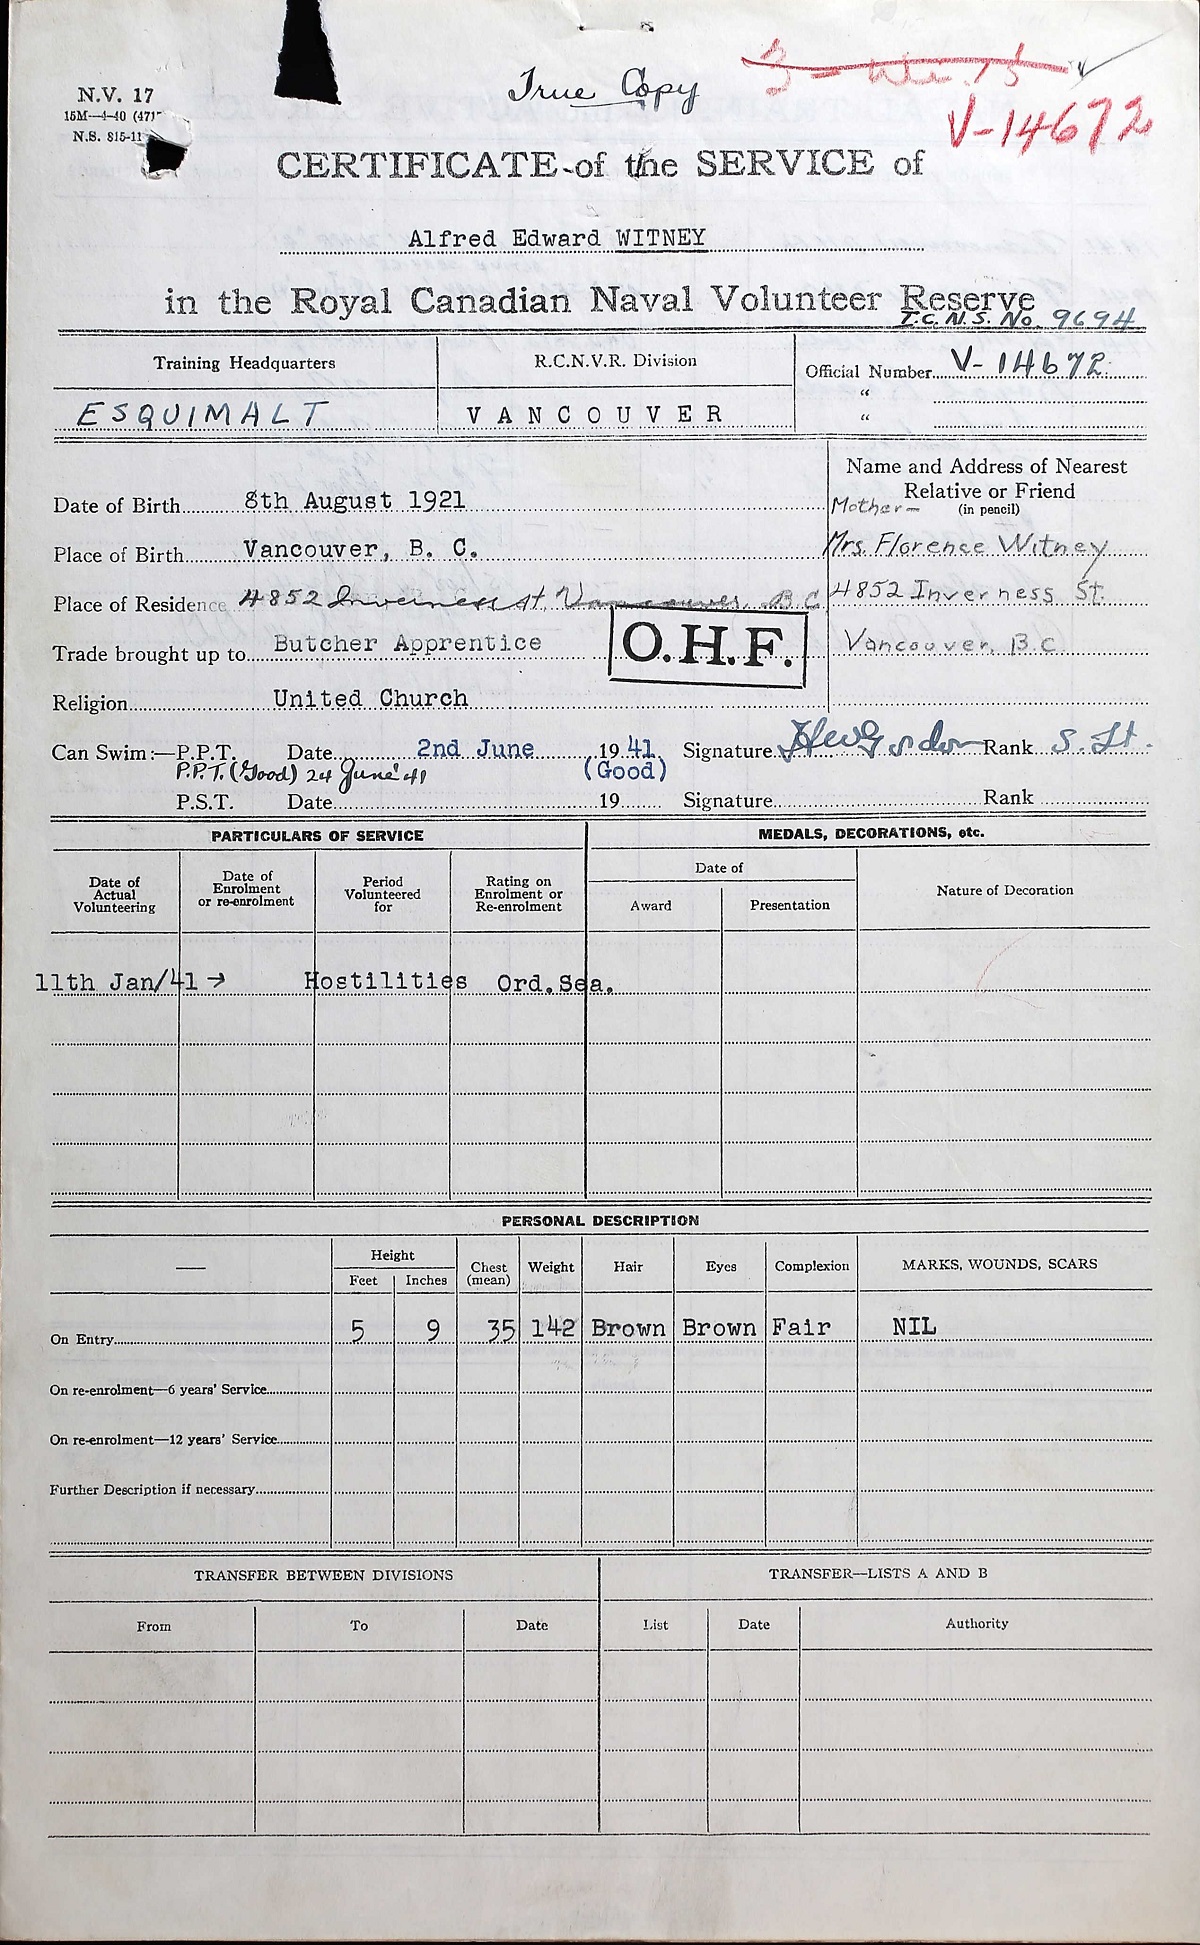 True Copy
N.V. 17
15M—4-40 (471
N.S. 815-11
V-14672
CERTIFICATE of the SERVICE of
Alfred Edward WITNEY
in the Royal Canadian Naval Volunteer Reserve
T.C.N.S. No. 9694
Training Headquarters R.C.N.V.R. Division Official Number V-14672
ESQUIMALT VANCOUVER "
"
Name and Address of Nearest Relative or Friend
(in pencil)
Date of Birth 8th August 1921 Mother—
Place of Birth Vancouver, B. C. Mrs. Florence Witney
Place of Residence 4852 Inverness st. Vancouver B.C. 4852 Inverness St.
Trade brought up to Butcher Apprentice O.H.F. Vancouver, B.C.
Religion United Church
Can Swim:—P.P.T. Date 2nd June 1941 Signature Rank S. Lt.
P.P.T. (Good) 24 June 41 (Good)
P.S.T. Date 19 Signature Rank
PARTICULARS OF SERVICE MEDALS, DECORATIONS, etc.
Date of Actual Volunteering Date of Enrolment or re-enrolment Period Volunteered for Rating on Enrolment or Re-enrolment Date of Nature of Decoration
Award Presentation
11th Jan/41 → Hostilities Ord.Sea.
PERSONAL DESCRIPTION
— Height Chest (mean) Weight Hair Eyes Complexion MARKS, WOUNDS, SCARS
Feet Inches
On Entry 5 9 35 142 Brown Brown Fair NIL
On re-enrolment—6 years' Service
On re-enrolment—12 years' Service
Further Description if necessary
TRANSFER BETWEEN DIVISIONS TRANSFER—LISTS A AND B
From To Date List Date Authority